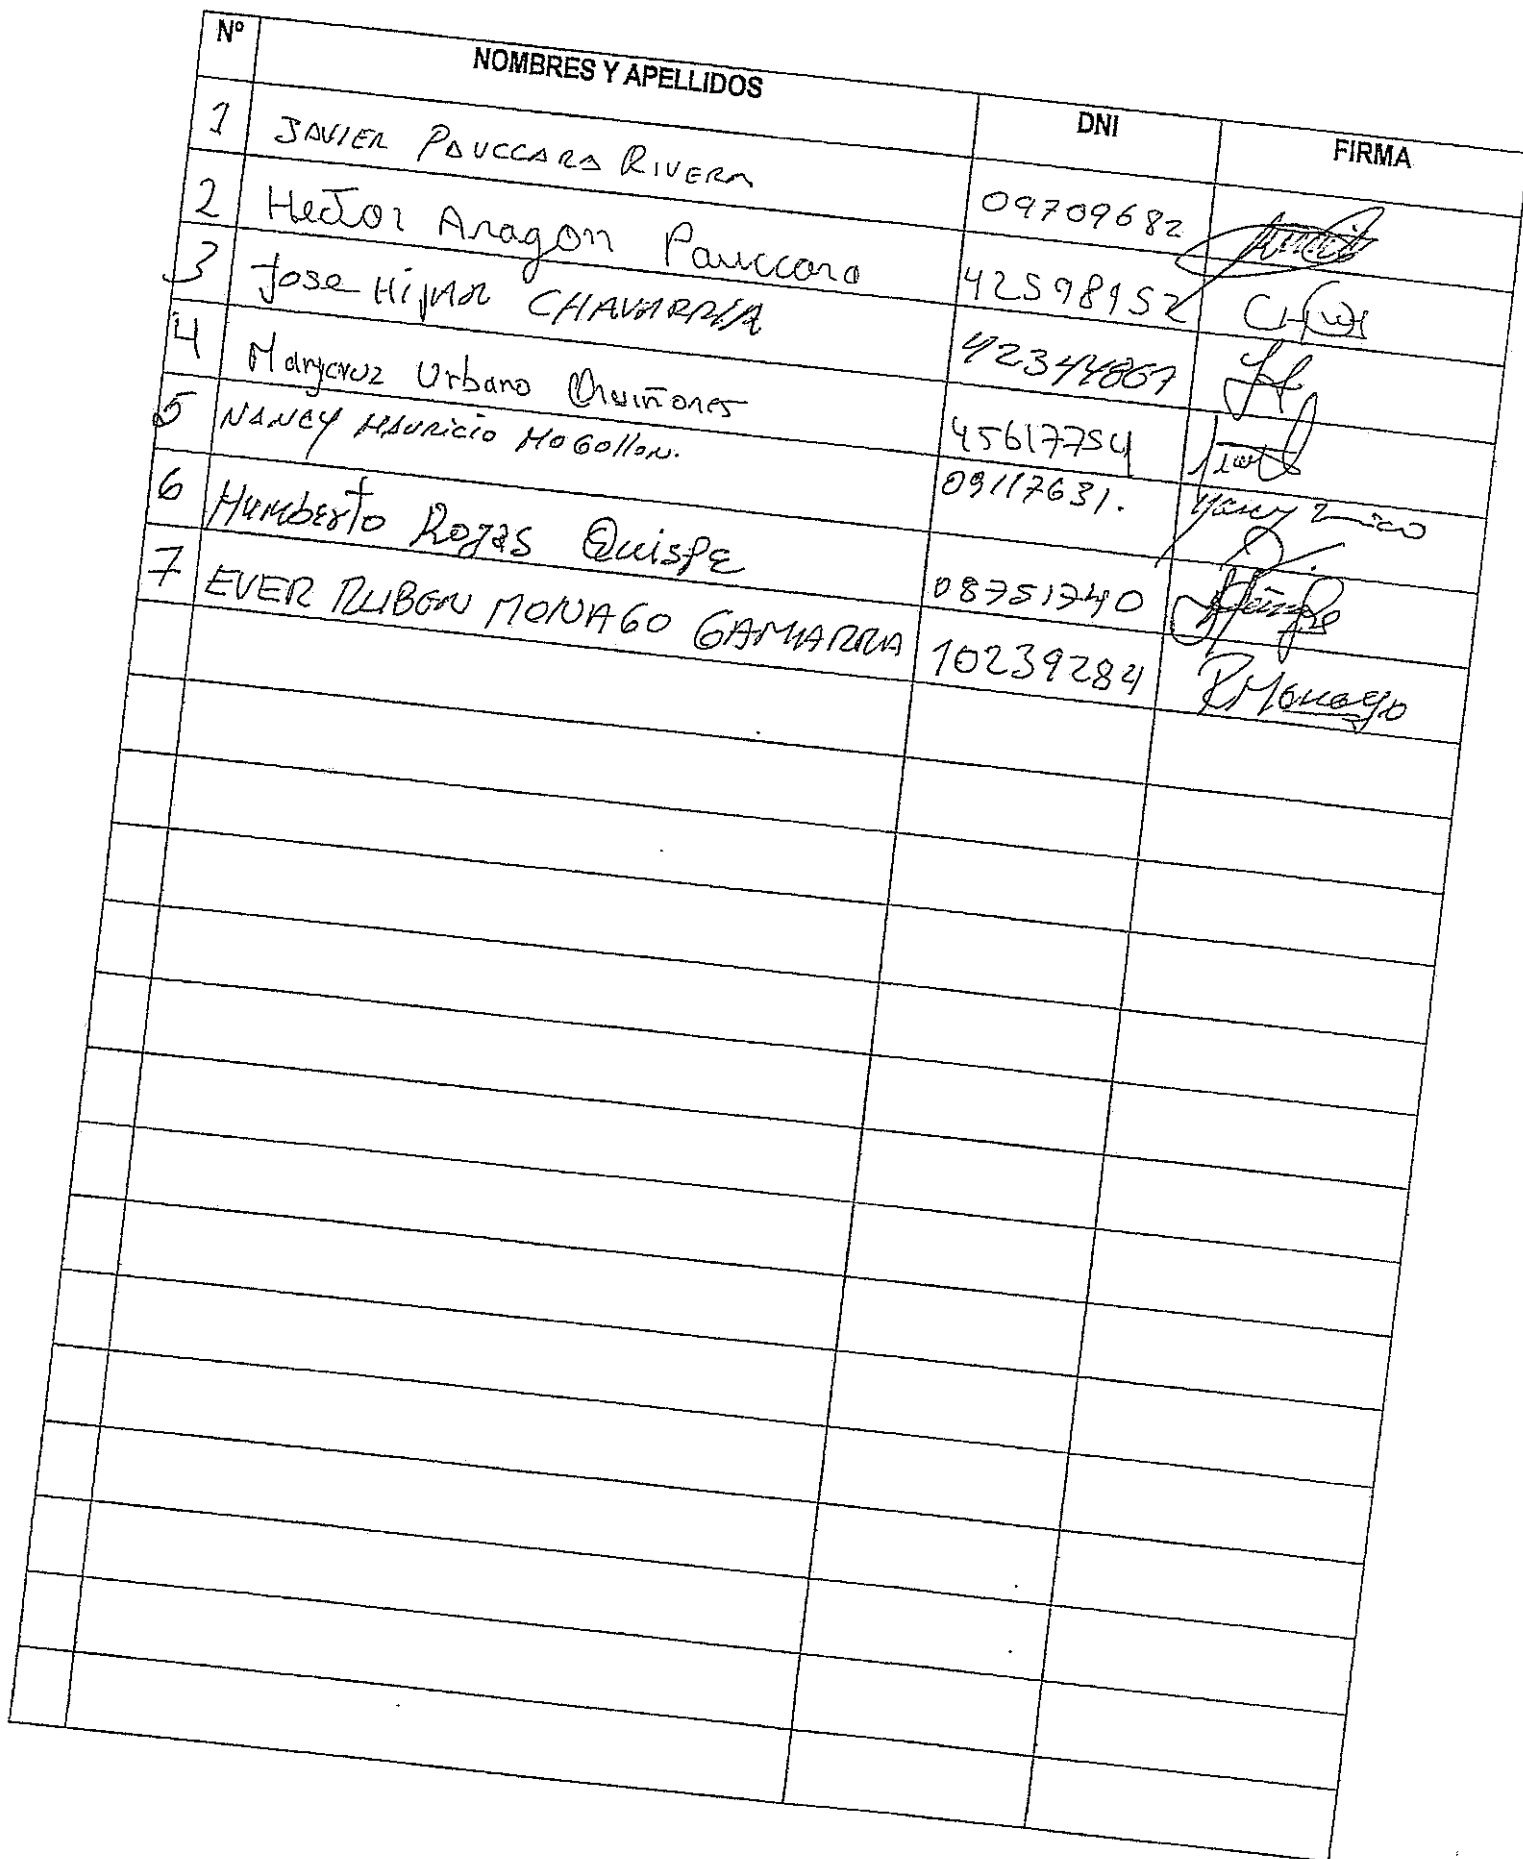 Nº NOMBRES Y APELLIDOS DNI FIRMA
1 JAVIER PAUCCARA RIVERA 09709682
2 Hector Aragon Pauccara 42598152
3 Jose CHAVARRIA 42344867
4 Marycruz Urbano Quiñones 45617754
5 NANCY MAURICIO MOGOLLON. 09117631.
6 Humberto Rojas Quispe 08751740
7 EVER RUBEN MONAGO GAMARRA 10239284 RMonago